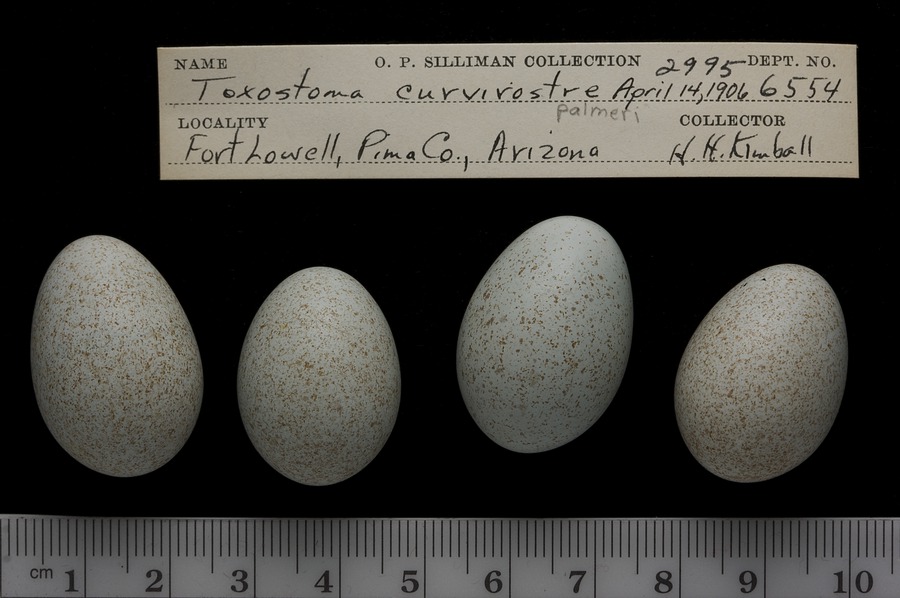 NAME O. P. SILLIMAN COLLECTION 2995 DEPT. NO.
Toxostoma curvirostre April 14, 1906 6554
palmeri
LOCALITY COLLECTOR
Fort Lowell, Pima Co., Arizona H. H. Kimball
cm 1 2 3 4 5 6 7 8 9 10